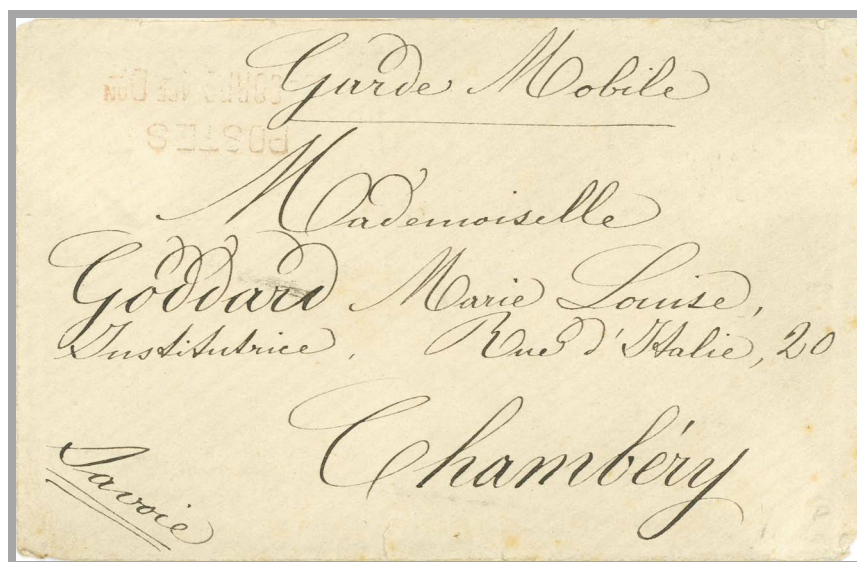 Garde Mobile
POSTES
Mademoiselle
Goddard Marie Louise,
Institutrice, Rue d'Italie, 20
Chambéry
Savoie